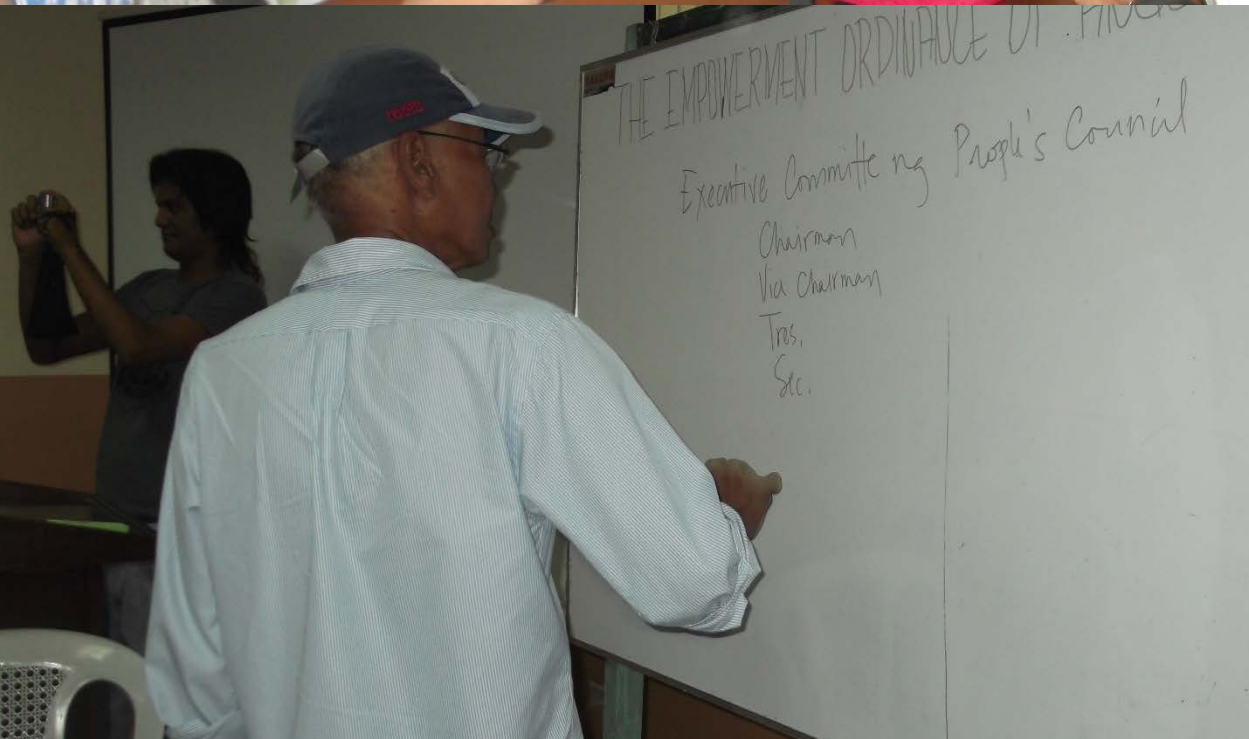 THE EMPOWERMENT ORDINANCE OF
Executive Committe ng People's Council
Chairman
Vice Chairman
Tres.
Sec.